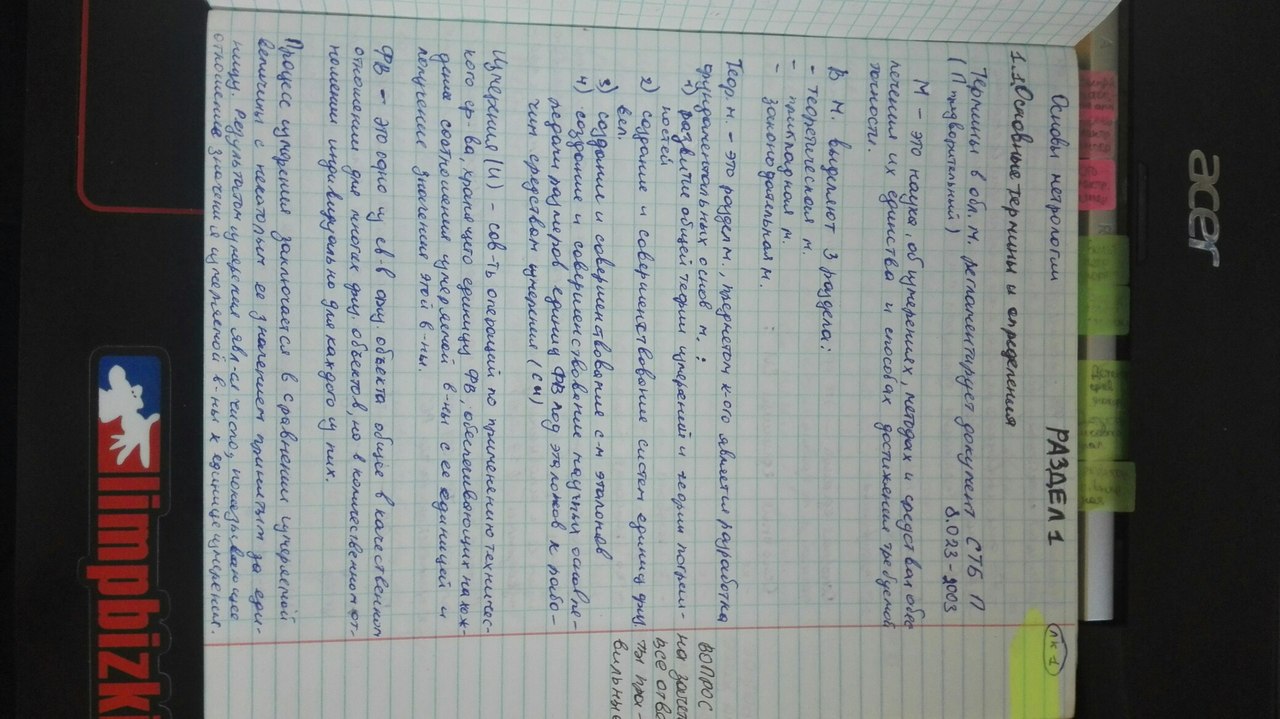 acer
Основы метрологии РАЗДЕЛ 1 ЛК 1
1.1 Основные термины и определения
Термины в обл. м. регламентирует документ СТБ П
(П предворительный) 8.023-2003
М – это наука, об измерениях, методах и средствах обес
печения их единства и способах достижения требуемой
точности.
В М. выделяют 3 раздела:
- теоретическая м.
- прикладная м.
- законодательная м.
Теор. м. – это раздел м., предметом к-ого является разработка
фундаментальных основ м. :
1) развитие общей теории измерений и теории погреш-
ностей
2) создание и совершенствование систем единиц физ.
вел.
3) создание и совершенствование с-м эталонов
4) создание и совершенствование научных основ пе-
редачи размеров единиц ФВ под эталонов к рабо-
чим средствам измерения (СИ)
ВОПРОС
на зачет
все отве
ты пра-
вильные
Измерения (И) – сов-ть операций по применению техничес-
кого ср-ва, хранящего единицу ФВ, обеспечивающих нахож-
дение соотношения измеряемой в-ны с ее единицей и
получение значения этой в-ны.
ФВ – это одно из св-в физ. объекта общее в качественном
отношении для многих физ. объектов, но в количественном от-
ношении индивидуально для каждого из них.
Процесс измерения заключается в сравнении измеряемой
величины с некоторым ее значением принятым за еди-
ницу. Результатом измерения явл-ся число, показывающее
отношение значения измеряемой в-ны к единице измерения.
limpbizki